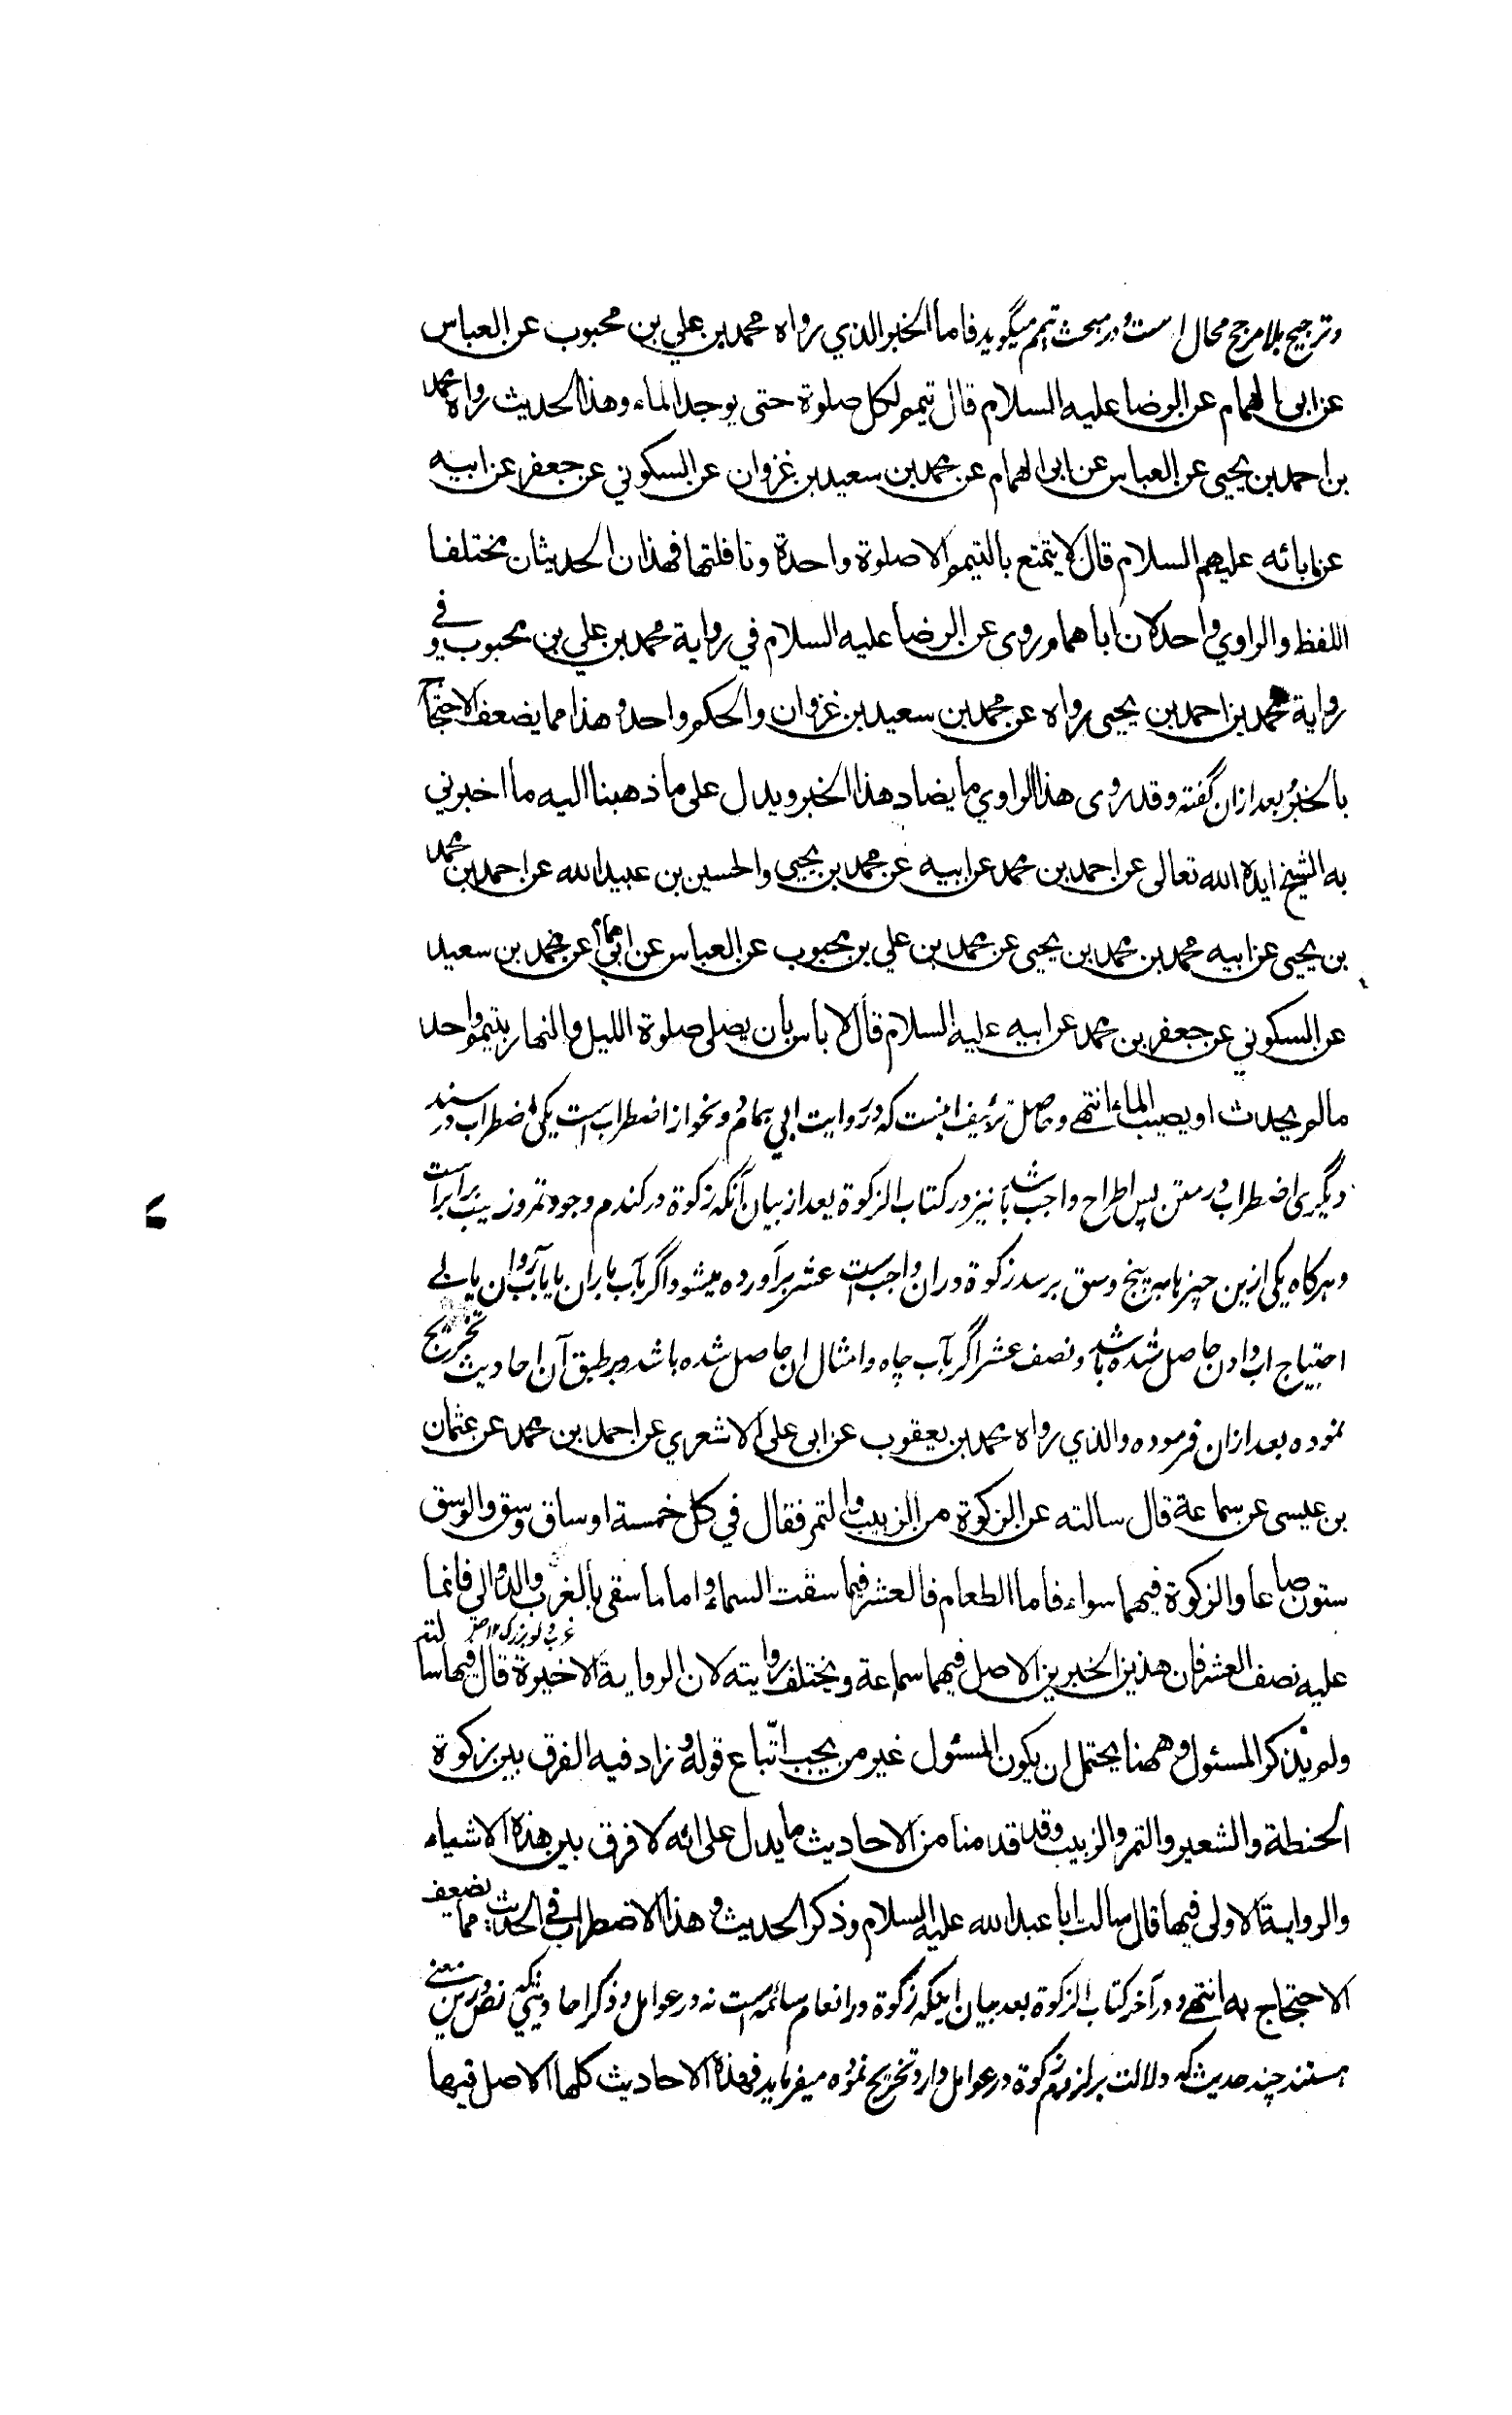 وترجیح بلا مرجح محال است و در مبحث تیمم میگوید فاما الخبر الذي رواه محمد بن علي بن محبوب عن العباس
عن ابی الهمام عن الرضا علیه السلام قال تیمم لکل صلوة حتی یوجد الماء وهذا الحدیث رواه محمد
بن احمد بن یحیی عن العباس عن ابی الهمام عن محمد بن سعید بن غزوان عن السکوني عن جعفر عن ابیه
عن ابائه علیهم السلام قال لا یتمتع بالتیمم الا صلوة واحدة ونافلتها فهذان الحدیثان مختلفا
اللفظ والراوي واحد لان ابا همام روی عن الرضا علیه السلام في روایة محمد بن علي بن محبوب و في
روایة محمد بن احمد بن یحیی رواه عن محمد بن سعید بن غزوان والحکم واحد و هذا مما یضعف الاحتجاج
بالخبر و بعد ازان گفته وقد روی هذا الراوي ما یضاد هذا الخبر ویدل علی ما ذهبنا الیه ما اخبرني
به الشیخ ایده الله تعالی عن احمد بن محمد عن ابیه عن محمد بن یحیی والحسین بن عبیدالله عن احمد بن محمد
بن یحیی عن ابیه محمد بن محمد بن یحیی عن محمد بن علي بن محبوب عن العباس عن ابی همام عن محمد بن سعید
عن السکوني عن جعفر بن محمد عن ابیه علیه السلام قال لا باس بان یصلی صلوة اللیل والنهار بتیمم واحد
مالم یحدث او یصیب الماء انتهی وحاصل اینست که در روایت ابی همام دو نحو از اضطراب است یکی اضطراب در سند
دیگری اضطراب در متن پس اطراح واجب باشد نیز در کتاب الزکوة بعد از بیان آنکه زکوة در کندم وجو و تمر و زبیب برابر است
وهرکاه یکی ازین چیزها به پنج وسق برسد زکوة دران واجب است عشر برآورده میشود اگر بآب باران یا بآب روان یا بی
احتیاج اب دادن حاصل شده باشد و نصف عشر اگر بآب چاه و امثال ان حاصل شده باشد و بر طبق آن احادیث تخریج
نموده بعد ازان فرموده والذي رواه محمد بن یعقوب عن ابی علی الاشعري عن احمد بن محمد عن عثمان
بن عیسی عن سماعة قال سالته عن الزکوة من الزبیب والتمر فقال في کل خمسة اوساق وسق والوسق
ستون صاعا والزکوة فیهما سواء فاما الطعام فالعشر فیما سقت السماء واما ما سقی بالغرب والدوالی فانما
علیه نصف العشر فان هذین الخبرین الاصل فیهما سماعة ویختلف روایته لان الروایة الاخیرة قال فیها سالته
ولم یذکر المسئول وههنا یحتمل ان یکون المسئول غیر من یجب اتّباع قوله و زاد فیه الفرق بین زکوة
الحنطة والشعیر والتمر والزبیب وقد قدمنا من الاحادیث ما یدل علی انه لا فرق بین هذه الاشیاء
والروایة الاولی فیها قال سالت ابا عبدالله علیه السلام وذکر الحدیث و هذا الاضطراب في الحدیث مما یضعف
الاحتجاج به انتهی و در آخر کتاب الزکوة بعد بیان اینکه زکوة در انعام سائمه است نه در عوامل و ذکر احادیثیکه نص درین معنی
هستند چند حدیث که دلالت بر لزوم زکوة در عوامل دارد تخریج نموده میفرماید فهذه الاحادیث کلها الاصل فیها